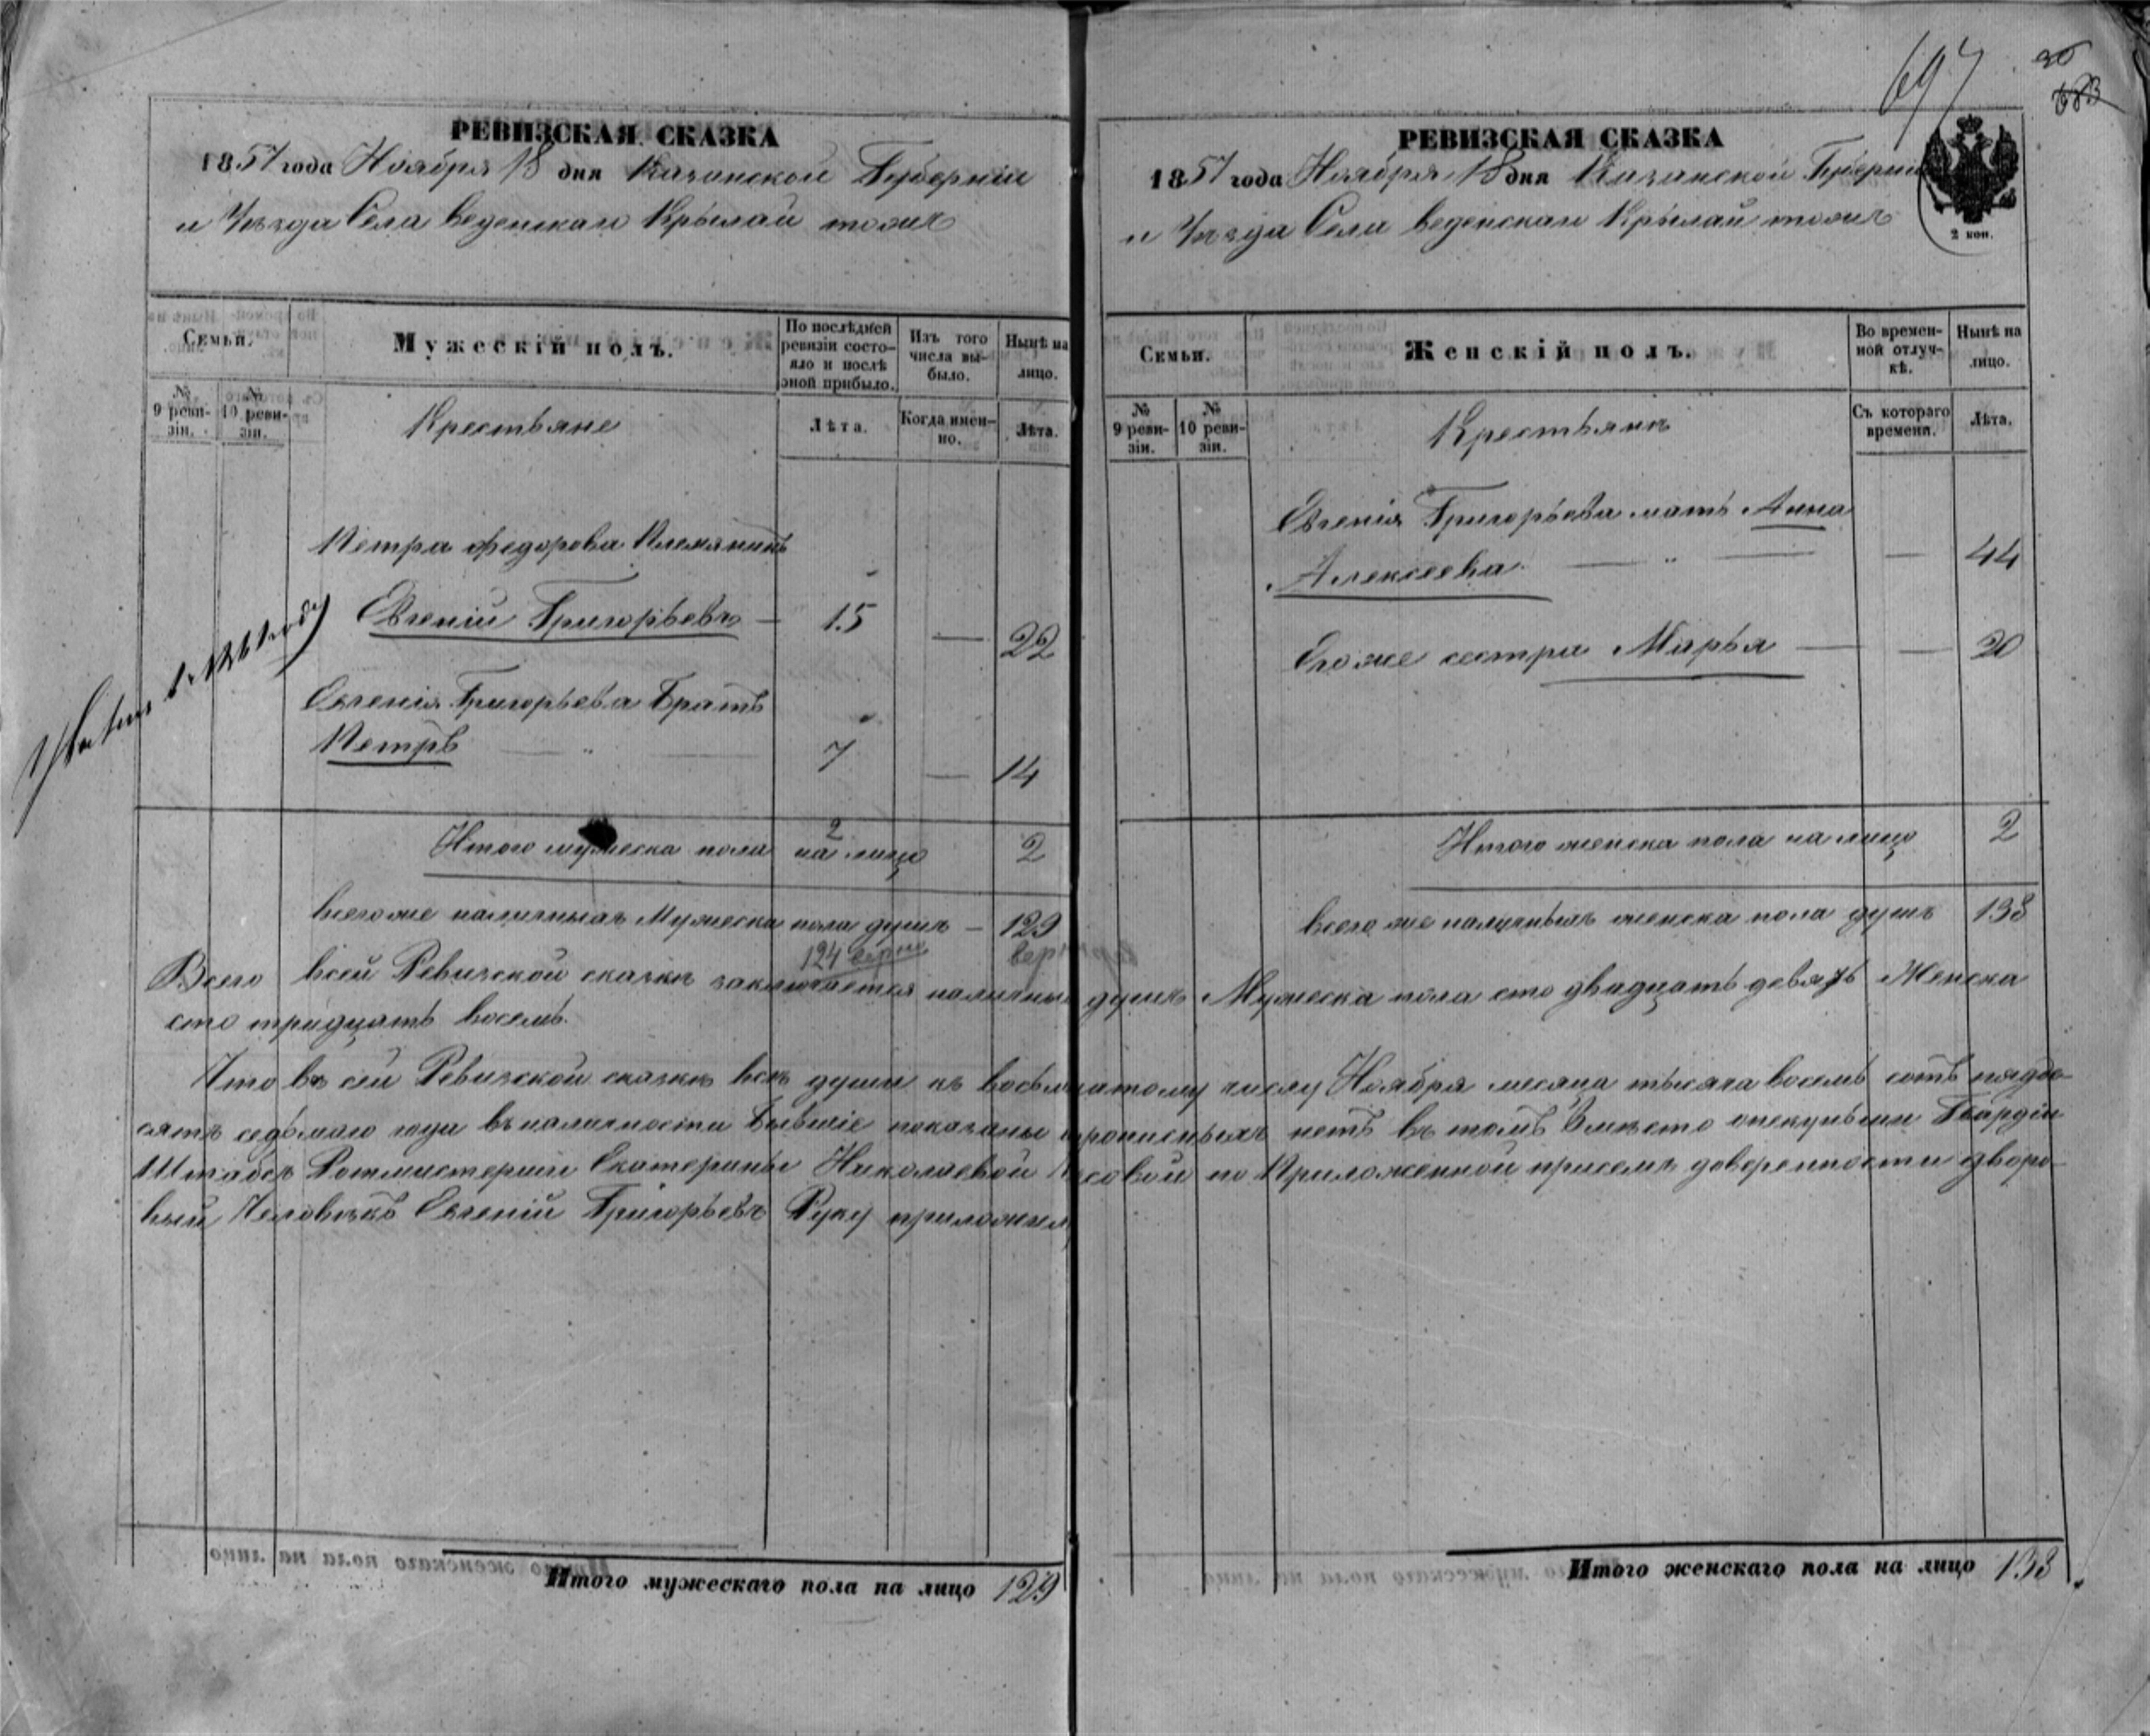 РЕВИЗСКАЯ СКАЗКА
1857 года Ноября 18 дня Казанской Губерніи
и Уѣзда Села Веденскаго Крылай тожъ
Семьи.
Мужескій полъ.
По послѣдней ревизіи состояло и послѣ оной прибыло.
Изъ того числа выбыло.
Нынѣ на лицо.
№ 9 ревизіи.
№ 10 ревизіи.
Крестьяне
Лѣта.
Когда именно.
Лѣта.
Петра Федорова Племянникъ
Евгеній Григорьевъ — 15 — 22
Евгенія Григорьева Братъ
Петръ — " — 7 — 14
2
Итого мужеска пола на лицо 2
всего же наличныхъ Мужеска пола душъ — 129
124 верно
РЕВИЗСКАЯ СКАЗКА
697
30
683
1857 года Ноября 18 дня Казанской Губерніи
и Уѣзда Села Веденскаго Крылай тожъ
2 коп.
Семьи.
Женскій полъ.
Во временной отлучкѣ.
Нынѣ на лицо.
№ 9 ревизіи.
№ 10 ревизіи.
Крестьянъ
Съ котораго времени.
Лѣта.
Евгенія Григорьева мать Анна
Алексеева — " — — 44
Его же сестра Марья — — 20
Итого женска пола на лицо 2
всего же наличныхъ женска пола душъ 138
Всего всей Ревизской сказкѣ заключается наличныхъ душъ Мужеска пола сто двадцать девять Женска
сто тридцать восемь.
Что въ сей Ревизской сказкѣ всѣ души къ восьмнатому числу Ноября месяца тысяча восемь сотъ пядде-
сятъ седьмаго года въ наличности бывшіе показаны прописныхъ нетъ въ томъ вместо опекунши Гвардіи
Штабсъ Ротмистерши Екатерины Николаевой по Приложенной присемъ доверенности дворо-
вый Человѣкъ Евгеній Григорьевъ Руку приложилъ
Итого мужескаго пола на лицо 129
Итого женскаго пола на лицо 138